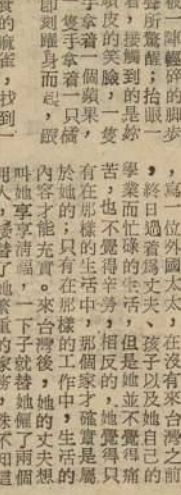 被一陣輕碎的脚步
聲所驚醒；抬眼一
看，接觸到的是妳
頑皮的笑臉，一隻
手拿着一個蘋果，
一隻手拿着一只橘
即刻躍身而起，跟
食的麻雀，找到一
，寫一位外國太太，在沒有來台灣之前
，終日過着爲丈夫、孩子以及她自己的
學業而忙碌的生活，但是她並不覺得痛
苦，也不覺得辛勞，相反的，她覺得只
有在那樣的生活中，那個家才確實是屬
於她的；只有在那樣的工作中，生活的
內容才能充實。來台灣後，她的丈夫想
叫她享享清福，一下子就替她僱了兩個
用人，接替了她繁重的家務，殊不知這